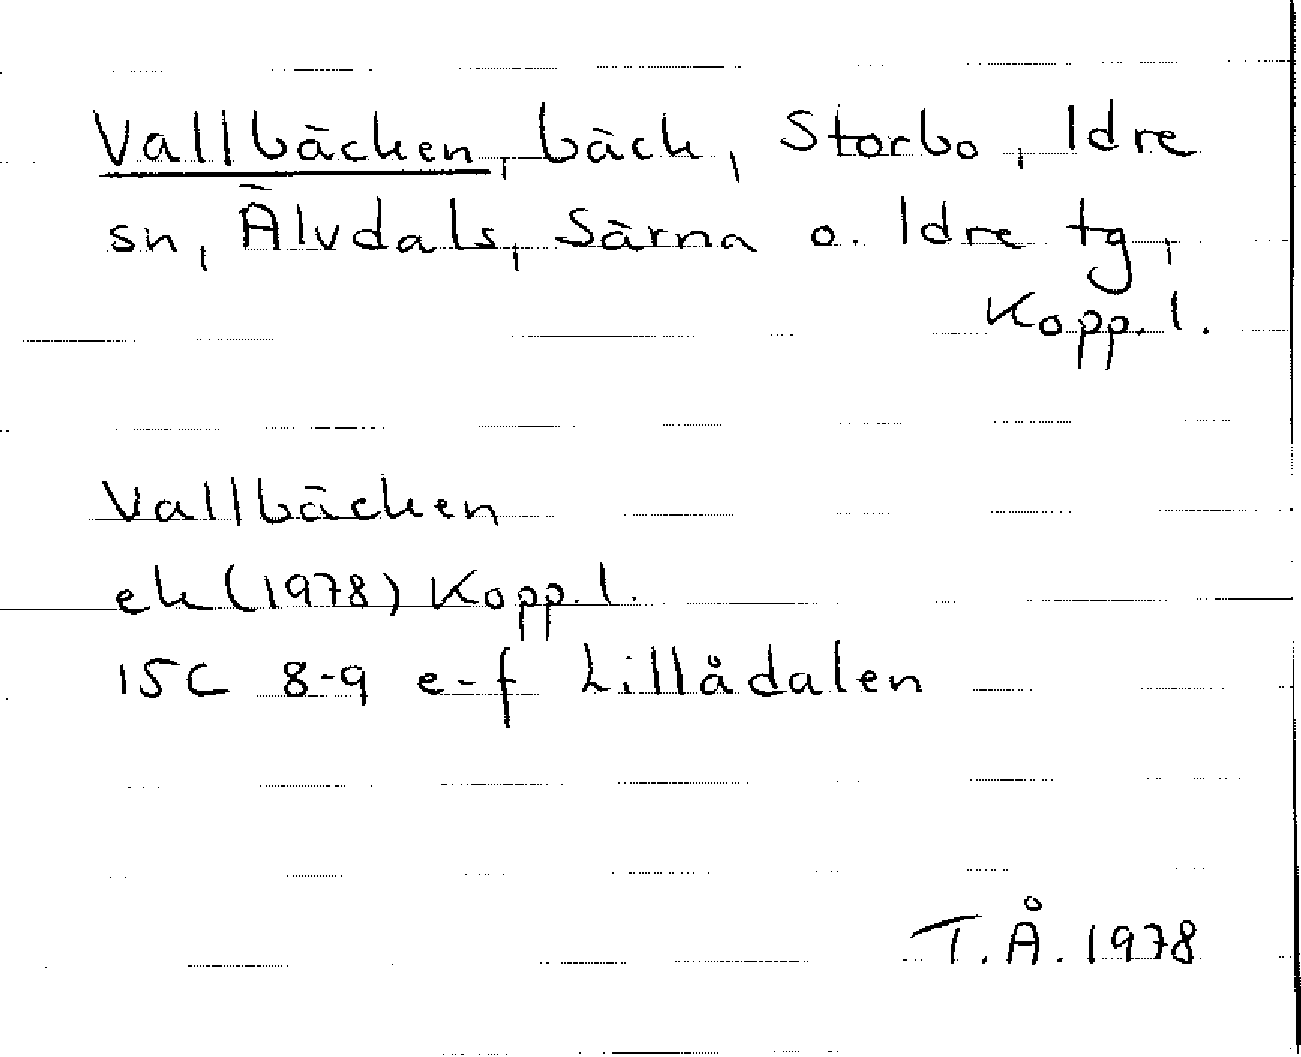 Vallbäcken, bäck, Storbo, Idre
sn, Älvdals, Särna o. Idre tg,
Kopp. l.
Vallbäcken
ek (1978) Kopp. l.
15C 8-9 e-f Lillådalen
T.Å. 1978